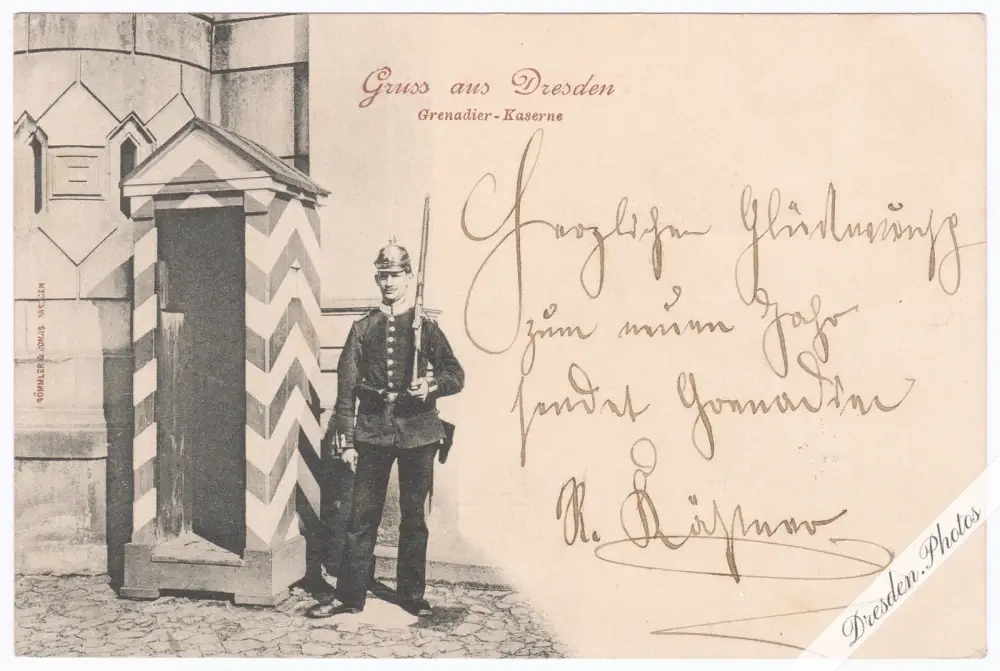 Gruss aus Dresden
Grenadier-Kaserne
Herzlichen Glückwunsch
zum neuen Jahr
sendet Grenadier
R. Kästner
RÖMMLER & JONAS, DRESDEN
Dresden.Photos